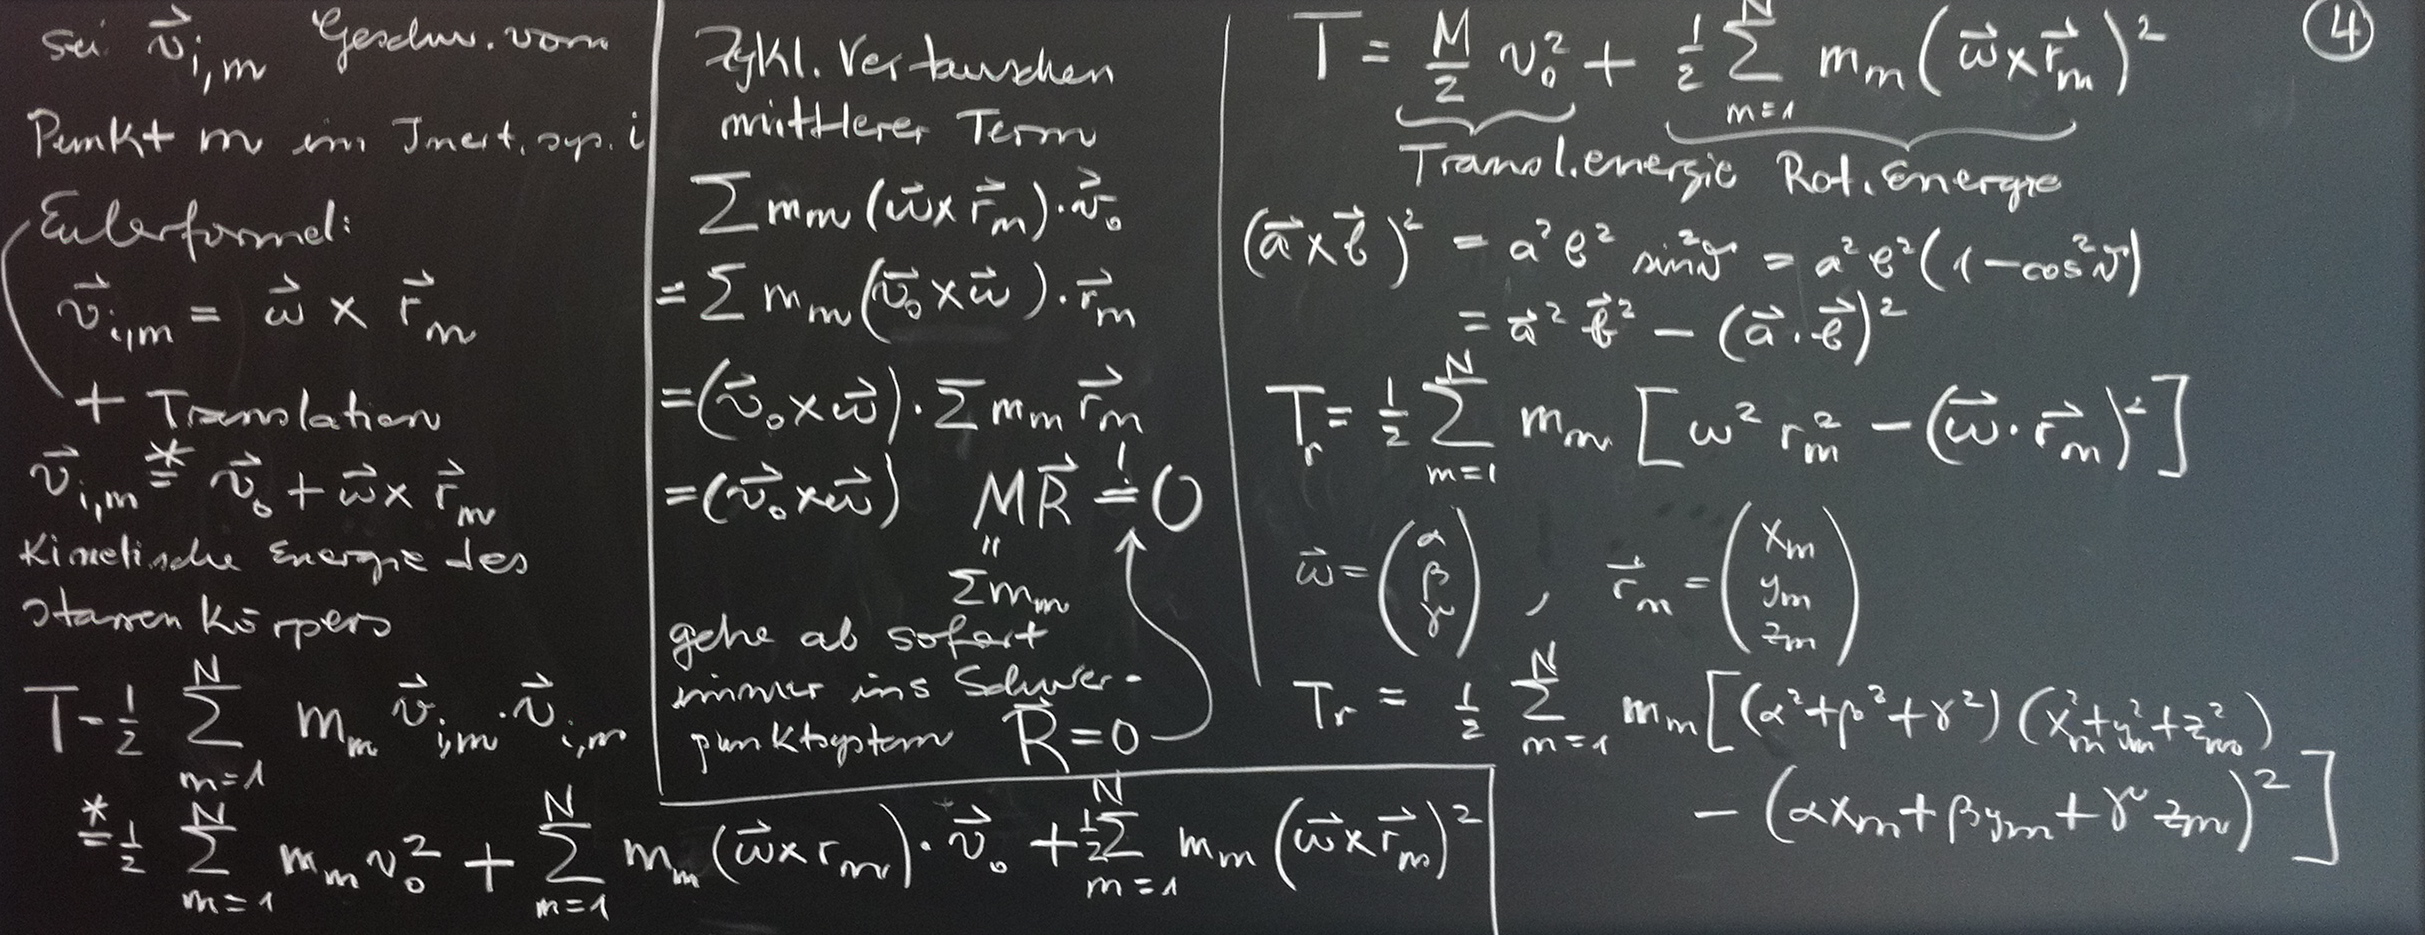 sei v⃗_{i,m} Geschw. vom
Punkt m im Inert.sys. i
Eulerformel:
v⃗_{i,m} = ω⃗ × r⃗_m
+ Translation
v⃗_{i,m} *= v⃗_0 + ω⃗ × r⃗_m
Kinetische Energie des
starren Körpers
T = 1/2 Σ_{m=1}^{N} m_m v⃗_{i,m} · v⃗_{i,m}
*= 1/2 Σ_{m=1}^{N} m_m v_0² + Σ_{m=1}^{N} m_m (ω⃗ × r_m) · v⃗_0 + 1/2 Σ_{m=1}^{N} m_m (ω⃗ × r⃗_m)²
Zykl. Vertauschen
mittlerer Term
Σ m_m (ω⃗ × r⃗_m) · v⃗_0
= Σ m_m (v⃗_0 × ω⃗) · r⃗_m
= (v⃗_0 × ω⃗) · Σ m_m r⃗_m
= (v⃗_0 × ω⃗) M R⃗ != 0
"
Σ m_m
gehe ab sofort
immer ins Schwer-
punktsystem R⃗ = 0
④
T = M/2 v_0² + 1/2 Σ_{m=1}^{N} m_m (ω⃗ × r⃗_m)²
Transl.energie Rot.Energie
(a⃗ × b⃗)² = a² b² sin²ϑ = a² b² (1 - cos²ϑ)
= a⃗² b⃗² - (a⃗ · b⃗)²
T_r = 1/2 Σ_{m=1}^{N} m_m [ω² r_m² - (ω⃗ · r⃗_m)²]
ω⃗ = (α β γ), r⃗_m = (x_m y_m z_m)
T_r = 1/2 Σ_{m=1}^{N} m_m [(α² + β² + γ²) (x_m² + y_m² + z_m²)
- (αx_m + βy_m + γz_m)²]